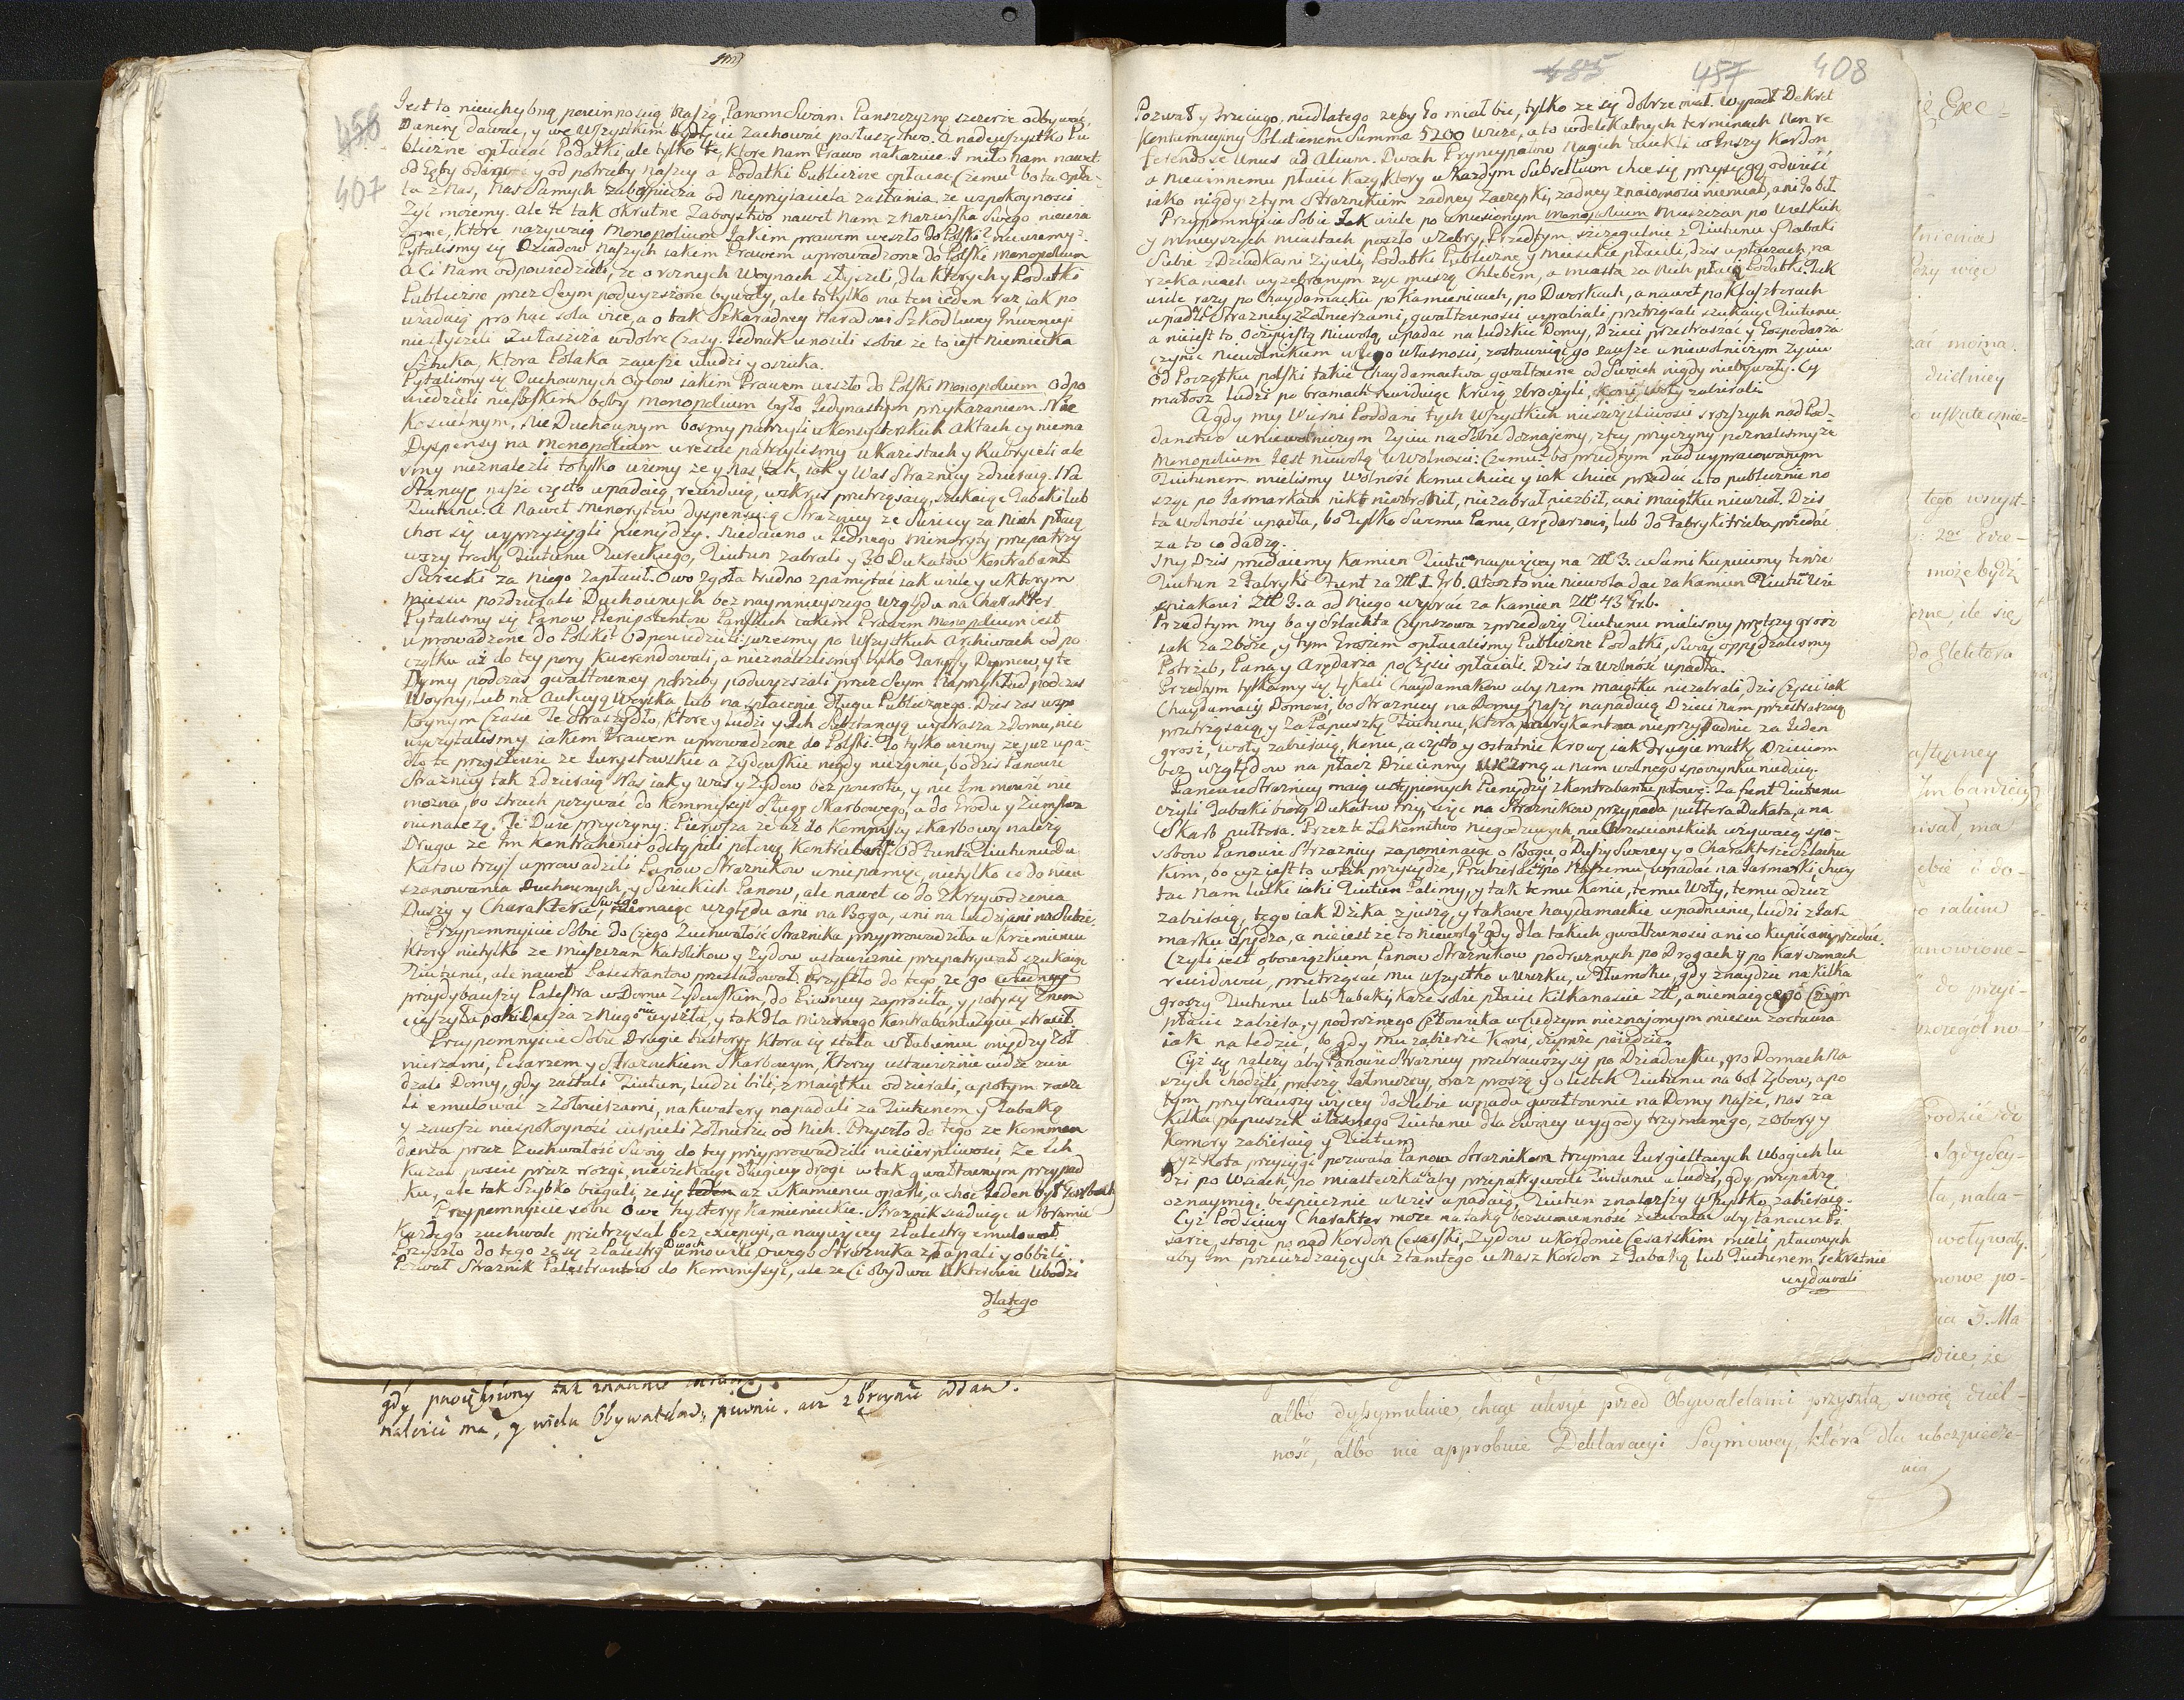 456
407
Jest to nieuchybną powinnością Naszą, Panom Swoim Panszczyznę szczerze odbywać,
Daninę dawać, y we wszystkim bydź im zachować posłuszęstwo. A nadewszystko Pu
bliczne opłacać Podatki, ale tylko te, ktore Nam Prawo nakazuie. I miło nam nawet
od Gęby y od potrzeby naszey a Podatki Publiczne opłacać. Czemu? bo ta opła-
ta z nas, Nas Samych zabespiecza od nieprzyiaciela zasłania, ze w spokoynosci
Zyć możemy. Ale te tak okrutne Zaboystwo nawet Nam z nazwiska Swego niewia
dome, ktore nazywaią Monopolium Jakim prawem weszło do Polski? niewiemy.
Pytalismy się Dziadow Naszych iakim Prawem wprowadzone do Polski monopolium
A Ci Nam odpowiedzieli, ze o roznych Woynach słyszeli, dla ktorych y Podatki
Publiczne przez Seym podwyzszone bywały, ale to tylko na ten ieden raz iak po
wiadaią pro hac sola vice, a o tak Szkaradney Narodowi Szkodliwey Inwencyi
niesłyszeli zwłaszcza w dobre Czasy. Jednak wnosili sobie ze to iest Niemiecka
Sztuka, ktora Polaka zawsze zwodzi y oszuka.
Pytalismy się Duchownych Oycow iakim Prawem weszło do Polski Monopolium. Odpo
wiedzieli nieboskim boby monopolium było Jedynastym przykazaniem. Nie
Koscielnym, Nie Duchownym bosmy patrzyli w Konsystorskich Aktach czy niema
Dyspensy na monopolium wreszcie patrzylismy w Kazestach y Rubryceli ale
smy nieznalezli to tylko wiemy ze y Nas, tak, iak y Was Straznicy zdzieraią. Na
Stancye nasze często wpadaią, rewiduią, wskroś przetrzęsaią, szukaiąc Tabaki lub
Tiutiunu. A nawet Minorytow dyspensuią Straznicy ze Swieccy za Nich płacą
choc się wyprzysięgli pieniędzy. Niedawno u Jednego Minoryty przepatrzy
wszy trochę Tiutiunu Tureckiego, Tiutiun zabrali y 30 Dukatow Kontrabant
Swiecki za Niego zapłacił. Owo zgoła trudno spamiętać iak wiele y w ktorym
Miescu pozdzierali Duchownych bez naymnieyszego względu na Charakter
Pytalismy się Panow Plenipotentow Panskich iakim Prawem monopolium iest
wprowadzone do Polski? Odpowiedzieli: iuzesmy po Wszystkich Archiwach od po
czątku aż do tey pory Kwerendowali, a nieznalezlismy tylko Taryffy Dymow, y te
Dymy podczas gwałtowney potrzeby podwyzszali przez Seym Naprzykład podczas
Woyny, lub na Aukcyą Woyska lub na spłacenie długu Publicznego. Dzis zas w spo
koynym Czasie Te Straszydło, ktore y ludzi y Ich Substancyą wystrasza z Domu, nie
wyczytalismy iakim Prawem wprowadzone do Polski. To tylko wiemy ze iuz upa-
dło te przysłowie ze Jurystowskie a Zydowskie nigdy niezginie, bo dzis Panowie
Straznicy tak zdzieraią Nas iak y Was y Zydow bez powrotu, y nic Im mowić nie
można, bo strach pozywać do Kommissyi Sługę Skarbowego, a do Grodu y Ziemstwa
nienalezą. Te Dwie przyczyny: Pierwsza ze aż do Kommissyi skarbowey nalezą
Druga ze Im Kontrahenci odstąpili połowę Kontrabantu od funta Tiutiunu Du
katow trzy/ wprowadzili Panow Straznikow w niepamięc, nietylko co do nieu
szanowania Duchownych, y Swieckich Panow, ale nawet co do Zkrzywdzenia
Duszy y Charakteru Swego, niemaiąc względu ani na Boga, ani na ludzi, ani na Siebie.
Przypomnyicie Sobie do Czego Zuchwałość Straznika przyprowadziła w Krzemieńcu
Ktory nietylko ze Mieszczan Katolikow y Zydow ustawicznie przepatrywał szukaiąc
Tiutiunu, ale nawet Palestrantow przesladował. Przyszło do tego ze go
przydybawszy Palestra w Domu Zydowskim, do Piwnicy zaprosiła, y poty się Z nim
cieszyła poki Dusza z Niego nie wyszła, y tak dla mizernego Kontrabantu życie stracił
Przypomnyicie Sobie Drugie historyę ktora się stała w Łabuniu między Żoł
nierzami, Pisarzem y Straznikiem Skarbowym, ktorzy ustawicznie wdzie rewi
dzali Domy, gdy zastali Tiutiun, ludzi bili, z maiątku odzierali, a potym zaczę
li emulować z Żołnierzami, na kwatery napadali za Tiutiunem y Tabaką
y zawsze niespokoyność cierpieli Żołnierze od Nich. Przyszło do tego ze Kommen
danta przez Zuchwałość Swoią do tey przyprowadzili niecierpliwosci, Ze Ich
Kazał puscić przez rozgi, nieczekaiąc długiey drogi w tak gwałtownym przypad
ku, ale tak Szybko biegali, ze się aż w Kamieńcu oparli, a choc Jeden był Garbaty
Przypomnyicie sobie Owe hystoryę Kamienieckie. Straznik siaduiąc w Bramie
Każdego zuchwale przetrząsał bez excepcyi, a naywięcey z Palestrą emulował
Przyszło do tego ze się z Palestry Dwoch umowili, owego Straznika złapali y obbili.
Pozwał Straznik Palestrantow do Kommissyi, ale ze Ci obydwa Aktorowie Ubodzi
dlatego
gdy
należeć ma, z wielu Obywatelow,
485 457 408
Pozwał y trzeciego, niedlatego zeby Go miał bić, tylko ze się dobrze miał. Wypadł Dekret
Kontumacyiny Solutionem Summa 5200 wziąć, a to w delikatnych terminach Non re
ferendo se Unus ad Alium. Dwoch Pryncypałow Nagich uciekli w Inszy Kordon
a Niewinnemu płacić Każą, ktory w Każdym Subsellium chce się przysięgą odwieść
iako nigdy z tym Straznikiem zadney Zaczepki, zadney znaiomosci niemiał, ani Go bił
Przypomnyicie Sobie Jak wiele po wniesionym monopolium Mieszczan po Wielkich
y mnieyszych miastach poszło w Zebry. Przedtym szczegulnie z Tiutiunu y Tabaki
Siebie z Dziadkami żywili, Podatki Publiczne y Mieyskie płacili, dzis w płaczach, na
rzekaniach wyżebranym żyć muszą Chlebem, a miasta za Nich płacą Podatki. Jak
wiele razy po Chaydamacku po Kamienicach, po Dworkach, a nawet po Klasztorach
wpadali Straznicy z Żołnierzami, gwałtownosci wyrabiali, przetrzęsali szukaiąc Tiutiunu
a nieiest to Oczywistą Niewolą wpadać na ludzkie Domy, Dzieci przestraszać y Gospodarza
czynić Niewolnikiem w Jego własności, zostawuiąc go zawsze w niewolniczym Zyciu
Od Początku polski takie Chaydamactwa gwałtowne od Swoich nigdy niebywały. Czy
małosz ludzi po bramach rewiduiąc Krwią zbroczyli, Konie, woły zabierali.
A gdy my Wierni Poddani tych Wszystkich nieszczęsliwosci srozszych nad Pod-
daństwo w niewolniczym Zyciu na Sobie doznaiemy, z tey przyczyny poznalismy ze
Monopolium Jest niewolą w Wolnosci: Czemu? bo przedtym nad wypracowanym
Tiutiunem mielismy Wolność komu chcieć y iak chcieć przedać a to publicznie no
sząc po Jarmarkach nikt niezbronił, niezabrał niezbił, ani maiątku niewziął. Dzis
ta wolność upadła, bo tylko Swemu Panu, Arędarzowi, lub do Fabryki trzeba przedać
za to co dadzą.
I My Dzis przedaiemy Kamien Tiutiunu naywięcey na Złł 3. a Sami Kupuiemy tenże
Tiutiun z Fabryki Funt za Złł. 1. Gr 6. A toz to nie niewola dać za kamien Tiutiunu Wie
śniakowi Złł 3. a od Niego wybrać za Kamien Złł 43 Gr 6.
Przedtym my ba y Szlachta Czynszowa z przedazy Tiutiunu mielismy prętszy grosz
iak za Zboże, y tym Groszem opłacalismy Publiczne Podatki, Swoią opędzalismy
Potrzeb, Pana y Arędarza po Części opłacali. Dzis ta Wolność upadła.
Przedtym tylkosmy się lękali Chaydamakow aby Nam maiątku niezabrali, dzis Częściej iak
Chaydamacy Domowi, bo Straznicy na Domy Nasze napadaią Dzieci nam przestraszaią
przetrzęsaią y Za Papuszkę Tiutiunu, ktora nieprzypadnie za Jeden
grosz, woły zabieraią, Konie, a często y ostatnie Krowę iak drugie matkę Dzieciom
bez względow na płacz Dziecinny Wieczną w nam wolnego spoczynku niedaią.
Panowie Straznicy maią ustąpionych Pieniędzy z Kontrabantu połowę. Za funt Tiutiunu
czyli Tabaki biorą Dukatow trzy, więc na Straznikow przypada pułtora Dukata, a na
Skarb pułtora. Przez te Łakomstwo Niegodziwych, nie Chrzescianskich używaią spo-
sobow Panowie Straznicy zapominaiąc o Bogu, o Duszy Swoiey y o Charakterze Szlache
ckim, bo czyz iest to w Ich przysiędze, Przebierać się po Naszemu, wpadać na Jarmarki, chwy
tać Nam lulki iaki Tiutiun Palimy, y tak temu Konie, temu Woły, temu odziez
zabieraią, tego iak Dzika zjuszą, y takowe haydamackie wpadnienie, ludzi z Jar
marku spędza, a nieiest ze to Niewolą? gdy dla takich gwałtownosci ani co kupić ani przedać.
Czyli iest obowiązkiem Panow Straznikow podroznych po Drogach y po karczmach
rewidować, przetrzęsać Mu wszystko w worku, w tłumoku, gdy znaydzie na kilka
groszy Tiutiunu lub Tabaki, Każe sobie płacić Kilkanascie Złł, a niemaiącego Czym
płacić zabiera, y podroznego Człowieka w Cudzym nieznajomym miescu zostawia
iak na ledzie, bo gdy mu zabierze Konie, Czymże poiedzie.
Czyż się należy aby Panowie Straznicy przebrawszy się po Dziadowsku, po Domach Na
szych chodzili, proszą Jałmuzny, oraz proszą y o listek Tiutiunu na bol Zębow, a po
tym przybrawszy więcey do Siebie wpada gwałtownie na Domy Nasze, Nas za
Kilka papuszek własnego Tiutiunu dla Swoiey wygody trzymanego, z Obory y
Komory zabieraią y Tiutiun
Czyz Rota przysięgi pozwala Panom Straznikom trzymać Jurgieltowych Ubogich lu
dzi po Wsiach, po miasteczkach aby przepatrywali Tiutiunu u ludzi, gdy przepatrzą
oznaymią, bespiecznie w wieś wpadaią Tiutiun znalazszy wszystko zabieraią.
Czyż Podściwy Charakter może na taką bezsumienność zezwalać aby Panowie Pi
sarze, stoiąc ponad Kordon Cesarski, Zydow w Kordonie Cesarskim mieli płatnych
aby Im przewidzaiących z tamtego w Nasz Kordon z Tabaką lub Tiutiunem sekretnie
wydawali
albo dyssymuluie, chcąc ukryć przed Obywatelami przyszłą swoię dziel-
ność, albo nie approbuie Deklaracyi Seymowey, która dla ubezpiecze-
nia